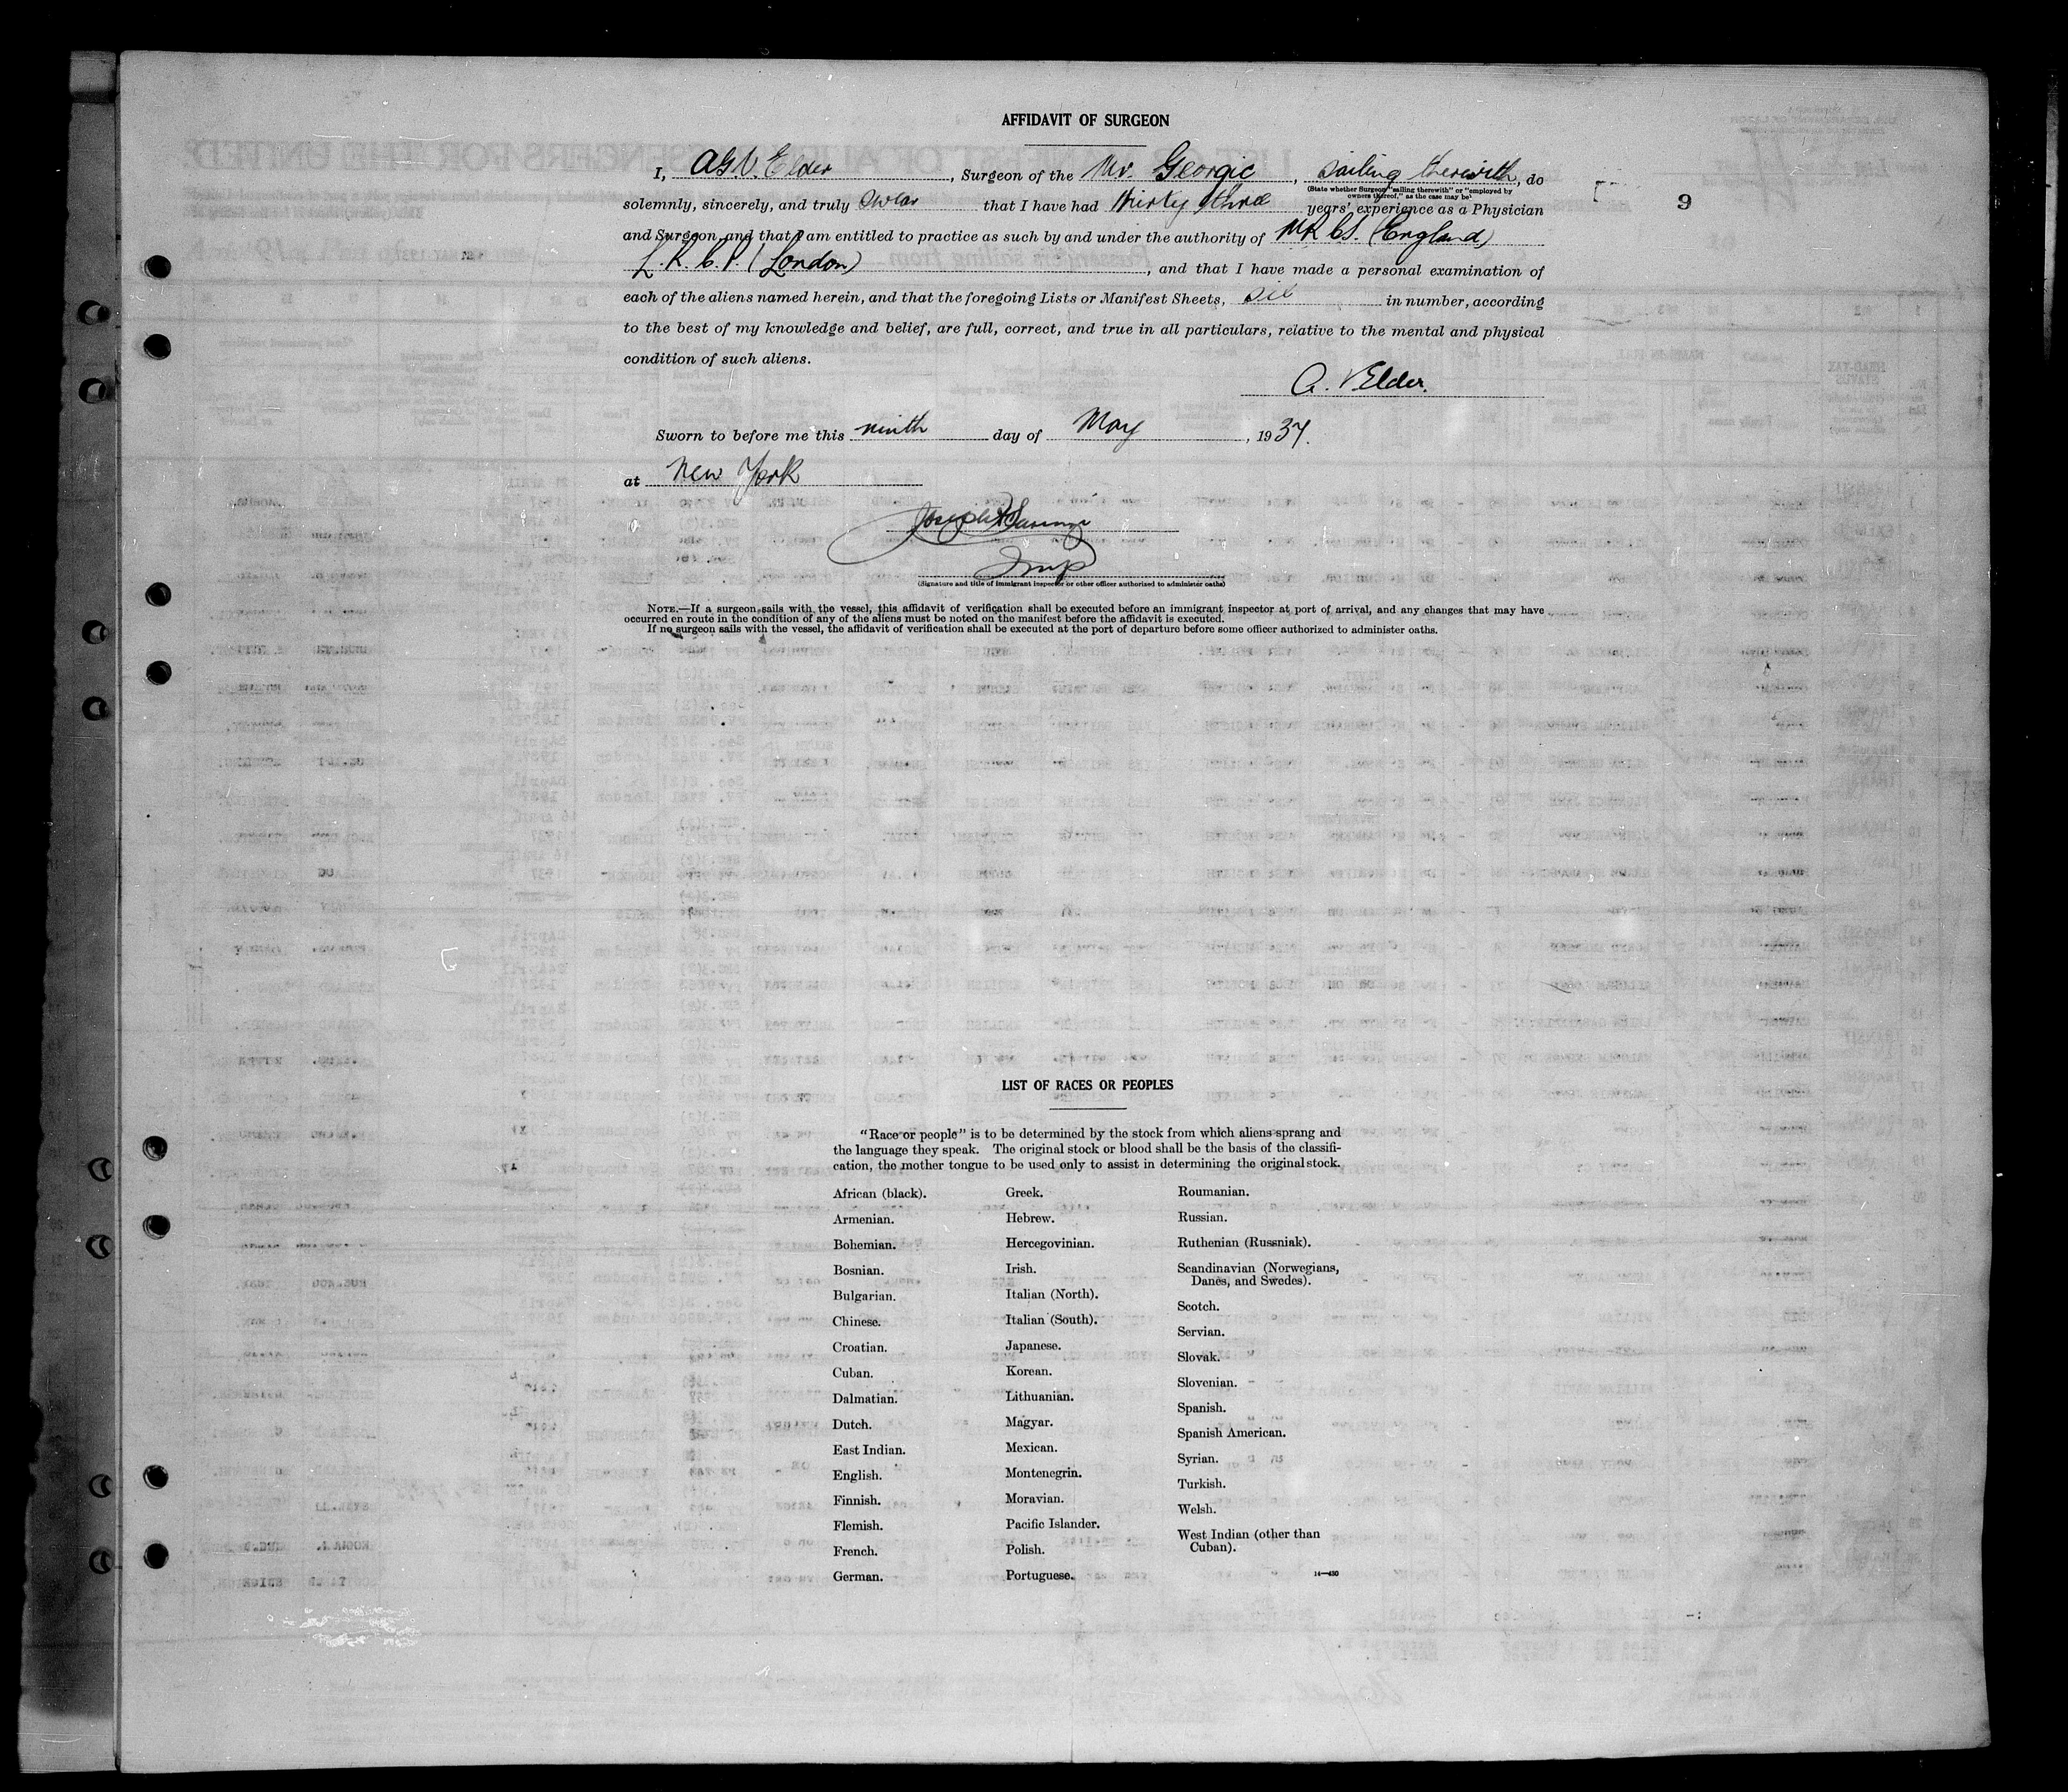 AFFIDAVIT OF SURGEON
I, A G. V. Elder, Surgeon of the Mv. Georgic, sailing therewith, do
(State whether Surgeon "sailing therewith" or "employed by
owners thereof," as the case may be)
9
solemnly, sincerely, and truly swear that I have had thirty three years' experience as a Physician
and Surgeon, and that I am entitled to practice as such by and under the authority of M R C S. (England)
L. R. C. P. (London), and that I have made a personal examination of
each of the aliens named herein, and that the foregoing Lists or Manifest Sheets, in number, according
to the best of my knowledge and belief, are full, correct, and true in all particulars, relative to the mental and physical
condition of such aliens.
A. V Elder.
Sworn to before me this ninth day of May, 1937.
at New York
Joseph
Insp
(Signature and title of immigrant inspector or other officer authorized to administer oaths)
NOTE.—If a surgeon sails with the vessel, this affidavit of verification shall be executed before an immigrant inspector at port of arrival, and any changes that may have
occurred en route in the condition of any of the aliens must be noted on the manifest before the affidavit is executed.
If no surgeon sails with the vessel, the affidavit of verification shall be executed at the port of departure before some officer authorized to administer oaths.
LIST OF RACES OR PEOPLES
"Race or people" is to be determined by the stock from which aliens sprang and
the language they speak. The original stock or blood shall be the basis of the classifi-
cation, the mother tongue to be used only to assist in determining the original stock.
African (black).
Armenian.
Bohemian.
Bosnian.
Bulgarian.
Chinese.
Croatian.
Cuban.
Dalmatian.
Dutch.
East Indian.
English.
Finnish.
Flemish.
French.
German.
Greek.
Hebrew.
Hercegovinian.
Irish.
Italian (North).
Italian (South).
Japanese.
Korean.
Lithuanian.
Magyar.
Mexican.
Montenegrin.
Moravian.
Pacific Islander.
Polish.
Portuguese.
Roumanian.
Russian.
Ruthenian (Russniak).
Scandinavian (Norwegians,
Danes, and Swedes).
Scotch.
Servian.
Slovak.
Slovenian.
Spanish.
Spanish American.
Syrian.
Turkish.
Welsh.
West Indian (other than
Cuban).
14—430